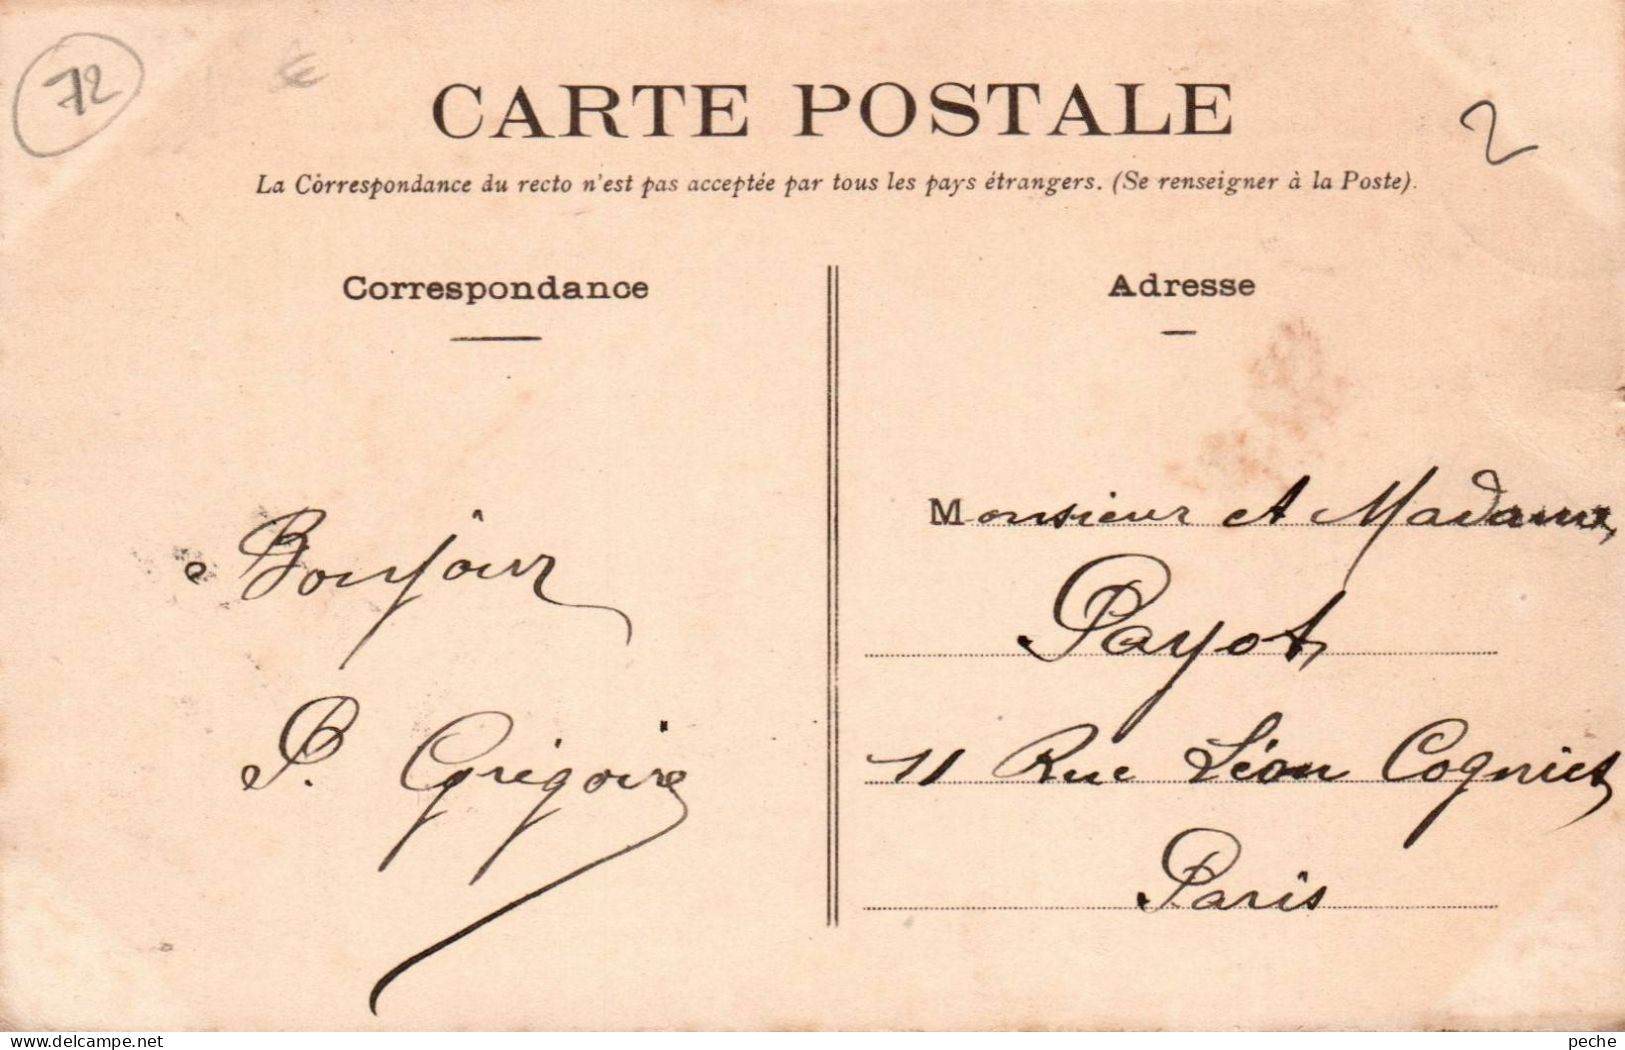 72
2
CARTE POSTALE
La Correspondance du recto n'est pas acceptée par tous les pays étrangers. (Se renseigner à la Poste).
Correspondance
Bonjour
P. Grégoire
Adresse
Monsieur et Madame
Payot
11 Rue Léon Cogniet
Paris
delcampe.net
peche